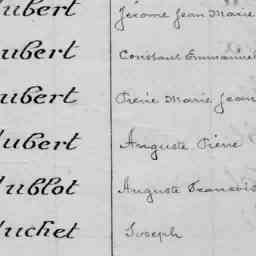 ubert Jérome Jean Marie
ubert Constant Emmanuel
ubert Pierre Marie Jean
ubert Auguste Pierre
ublot Auguste Francois
uchet Joseph